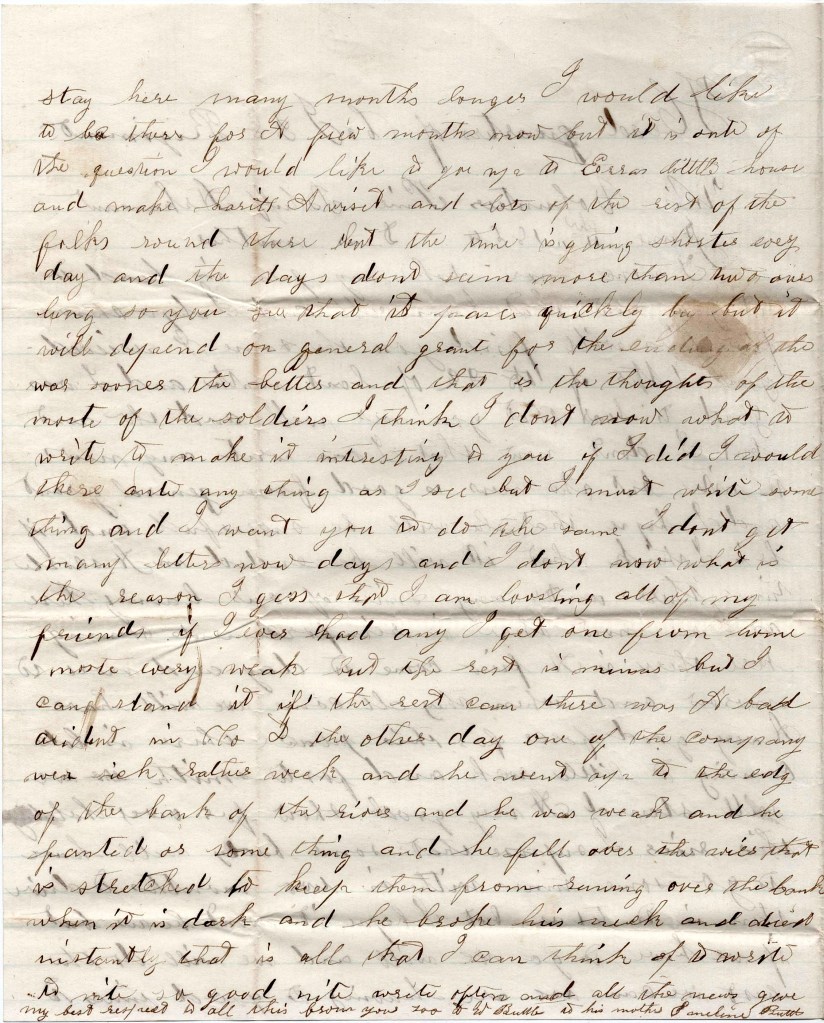 stay here many months longer I would like
to be there for A fiew months now but it is oute of
the question I would like to goe up to Ezras Buttle house
and make A visit and lots of the rest of the
folks round there but the time is gring shorter every
day and the days dont seim more than two ours
long so you see that it pases quickly by but it
will depend on general grant for the ending of the
war sooner the better and that is the thoughts of the
moste of the soldiers I think I dont now what to
write to make it interesting to you if I did I would
there ante any thing as I see but I must write some
thing and I want you to do the same I dont get
many letters now days and I dont now what is
the reason I gess that I am loosing all of my
friends if I ever had any I get one from home
moste every weak but the rest is minus but I
can stand it if the rest can there was A bad
acident in Co I the other day one of the company
wes sick rather week and he went up to the edg
of the bank of the river and he was weak and he
fanted or some thing and he fell over the wier that
is stretched to keep them from runing over the bank
when it is dark and he broke his neck and died
instantly that is all that I can think of to write
to nite so good nite write often and all the news give
my best respect to all this from you son W Buttle to his mother Emeline Buttle